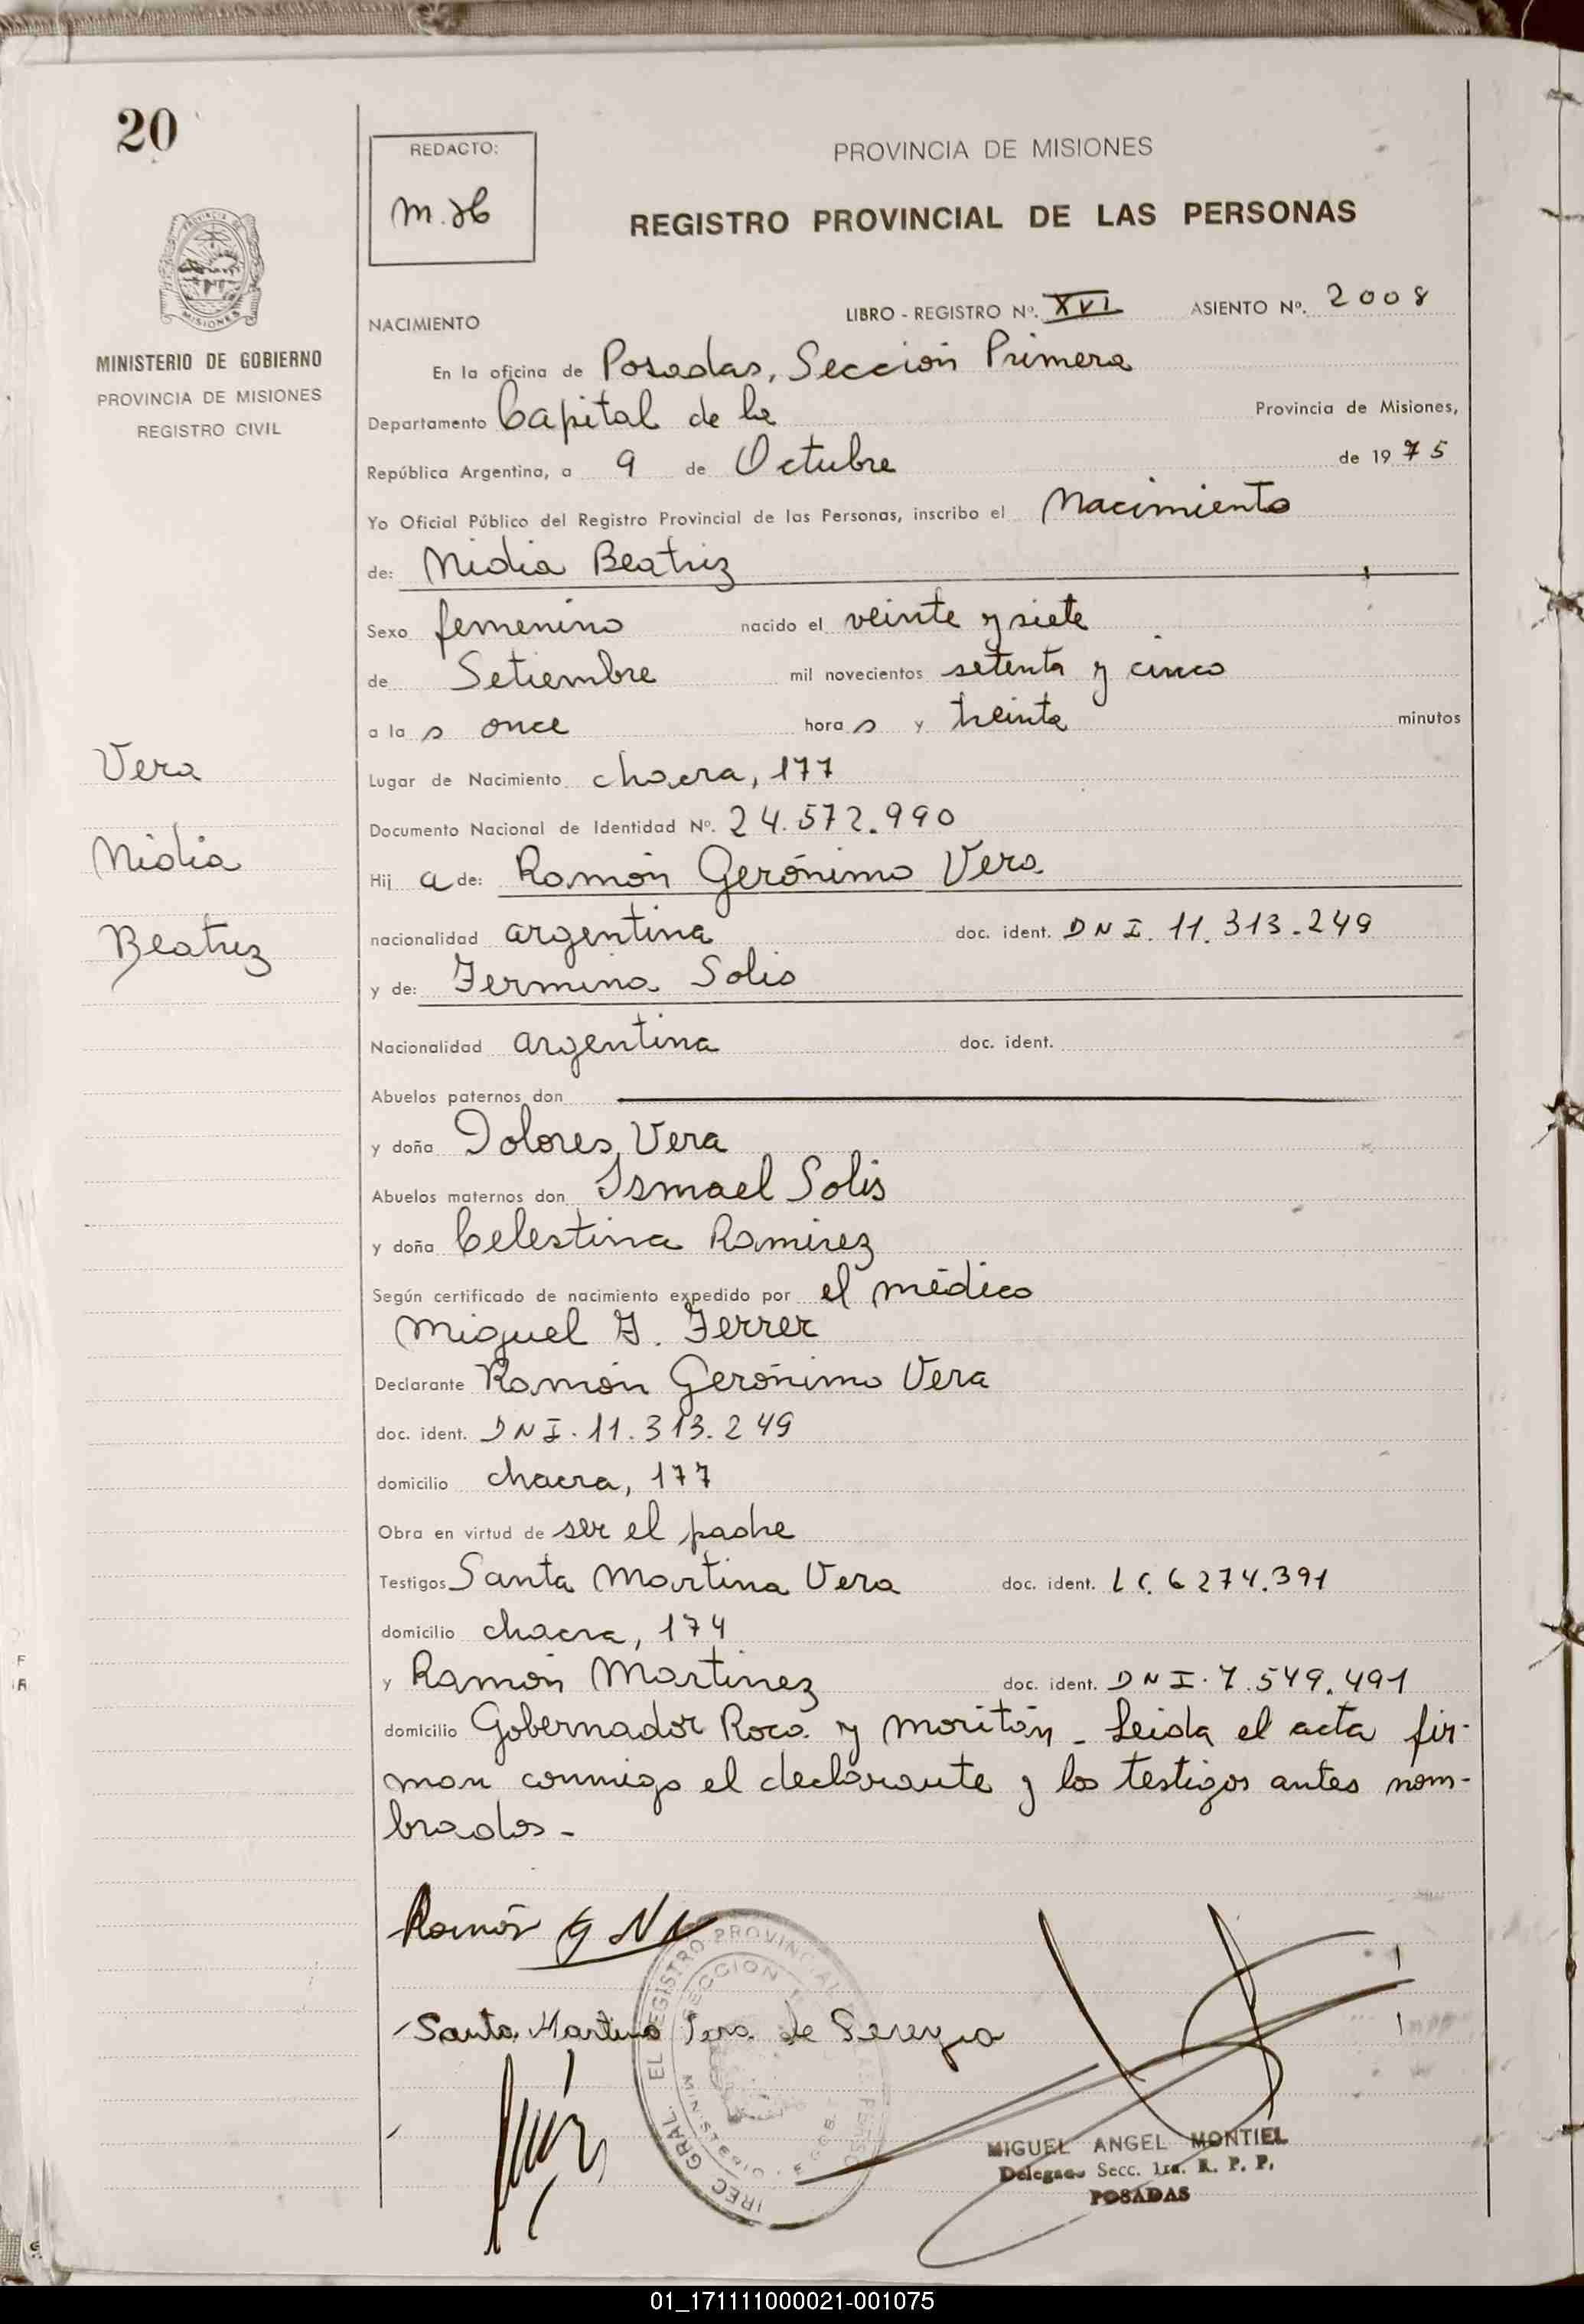 20
REDACTO:
M.H
PROVINCIA DE MISIONES
REGISTRO PROVINCIAL DE LAS PERSONAS
PROVINCIA DE
MISIONES
MINISTERIO DE GOBIERNO
PROVINCIA DE MISIONES
REGISTRO CIVIL
NACIMIENTO
LIBRO - REGISTRO Nº. XVI ASIENTO Nº. 2008
En la oficina de Posadas, Sección Primera
Departamento Capital de la Provincia de Misiones,
República Argentina, a 9 de Octubre de 1975
Yo Oficial Público del Registro Provincial de las Personas, inscribo el Nacimiento
de: Nidia Beatriz
Sexo femenino nacido el veinte y siete
de Setiembre mil novecientos setenta y cinco
a las once horas y treinta minutos
Vera
Nidia
Beatriz
Lugar de Nacimiento chacra, 177
Documento Nacional de Identidad Nº. 24.572.990
Hija de: Ramón Gerónimo Vera
nacionalidad argentina doc. ident. DNI. 11.313.249
y de: Fermina Solis
Nacionalidad argentina doc. ident.
Abuelos paternos don
y doña Dolores Vera
Abuelos maternos don Ismael Solis
y doña Celestina Ramirez
Según certificado de nacimiento expedido por el médico
Miguel F. Ferrer
Declarante Ramón Gerónimo Vera
doc. ident. DNI. 11.313.249
domicilio chacra, 177
Obra en virtud de ser el padre
Testigos Santa Martina Vera doc. ident. LC. 6274.391
domicilio chacra, 174
y Ramón Martinez doc. ident. DNI. 7.549.491
domicilio Gobernador Roca y moritán - Leida el acta fir-
man conmigo el declarante y los testigos antes nom-
brados -
Ramón G
Santa Martina Vera de
EL REGISTRO PROVINCIAL
SECCION
MIGUEL ANGEL MONTIEL
Delegado Secc. 1ra. R. P. P.
POSADAS
01_171111000021-001075